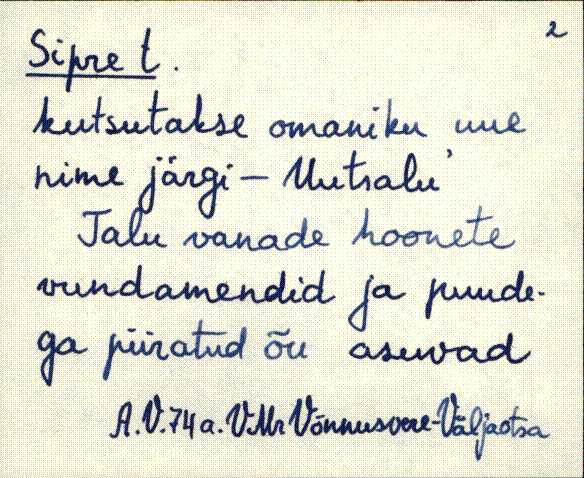 2
Sipre t.
kutsutakse omaniku uue
nime järgi – Uutsalu'
Talu vanade hoonete
vundamendid ja puude-
ga piiratud õu asuvad
A.V. 74 a. VMr Võnnusvere-Väljaotsa